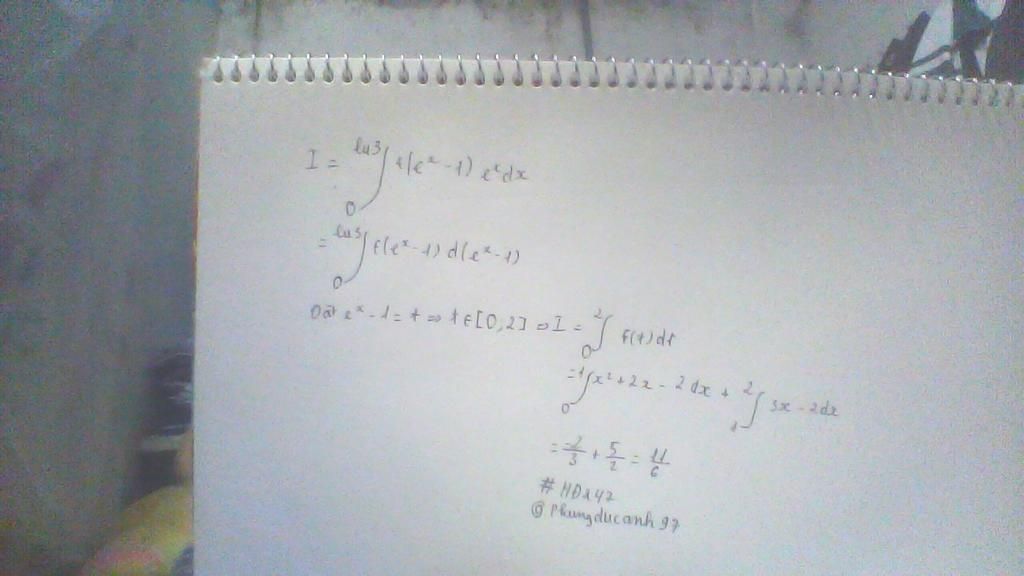 I = ∫₀^{ln3} f(eˣ - 1) eˣdx
= ∫₀^{ln3} f(eˣ - 1) d(eˣ - 1)
Đặt eˣ - 1 = t ⇒ t ∈ [0, 2] ⇒ I = ∫₀² f(t) dt
= ∫₀¹ x² + 2x - 2 dx + ∫₁² 3x - 2 dx
= -2/3 + 5/2 = 11/6
@Phungducanh97